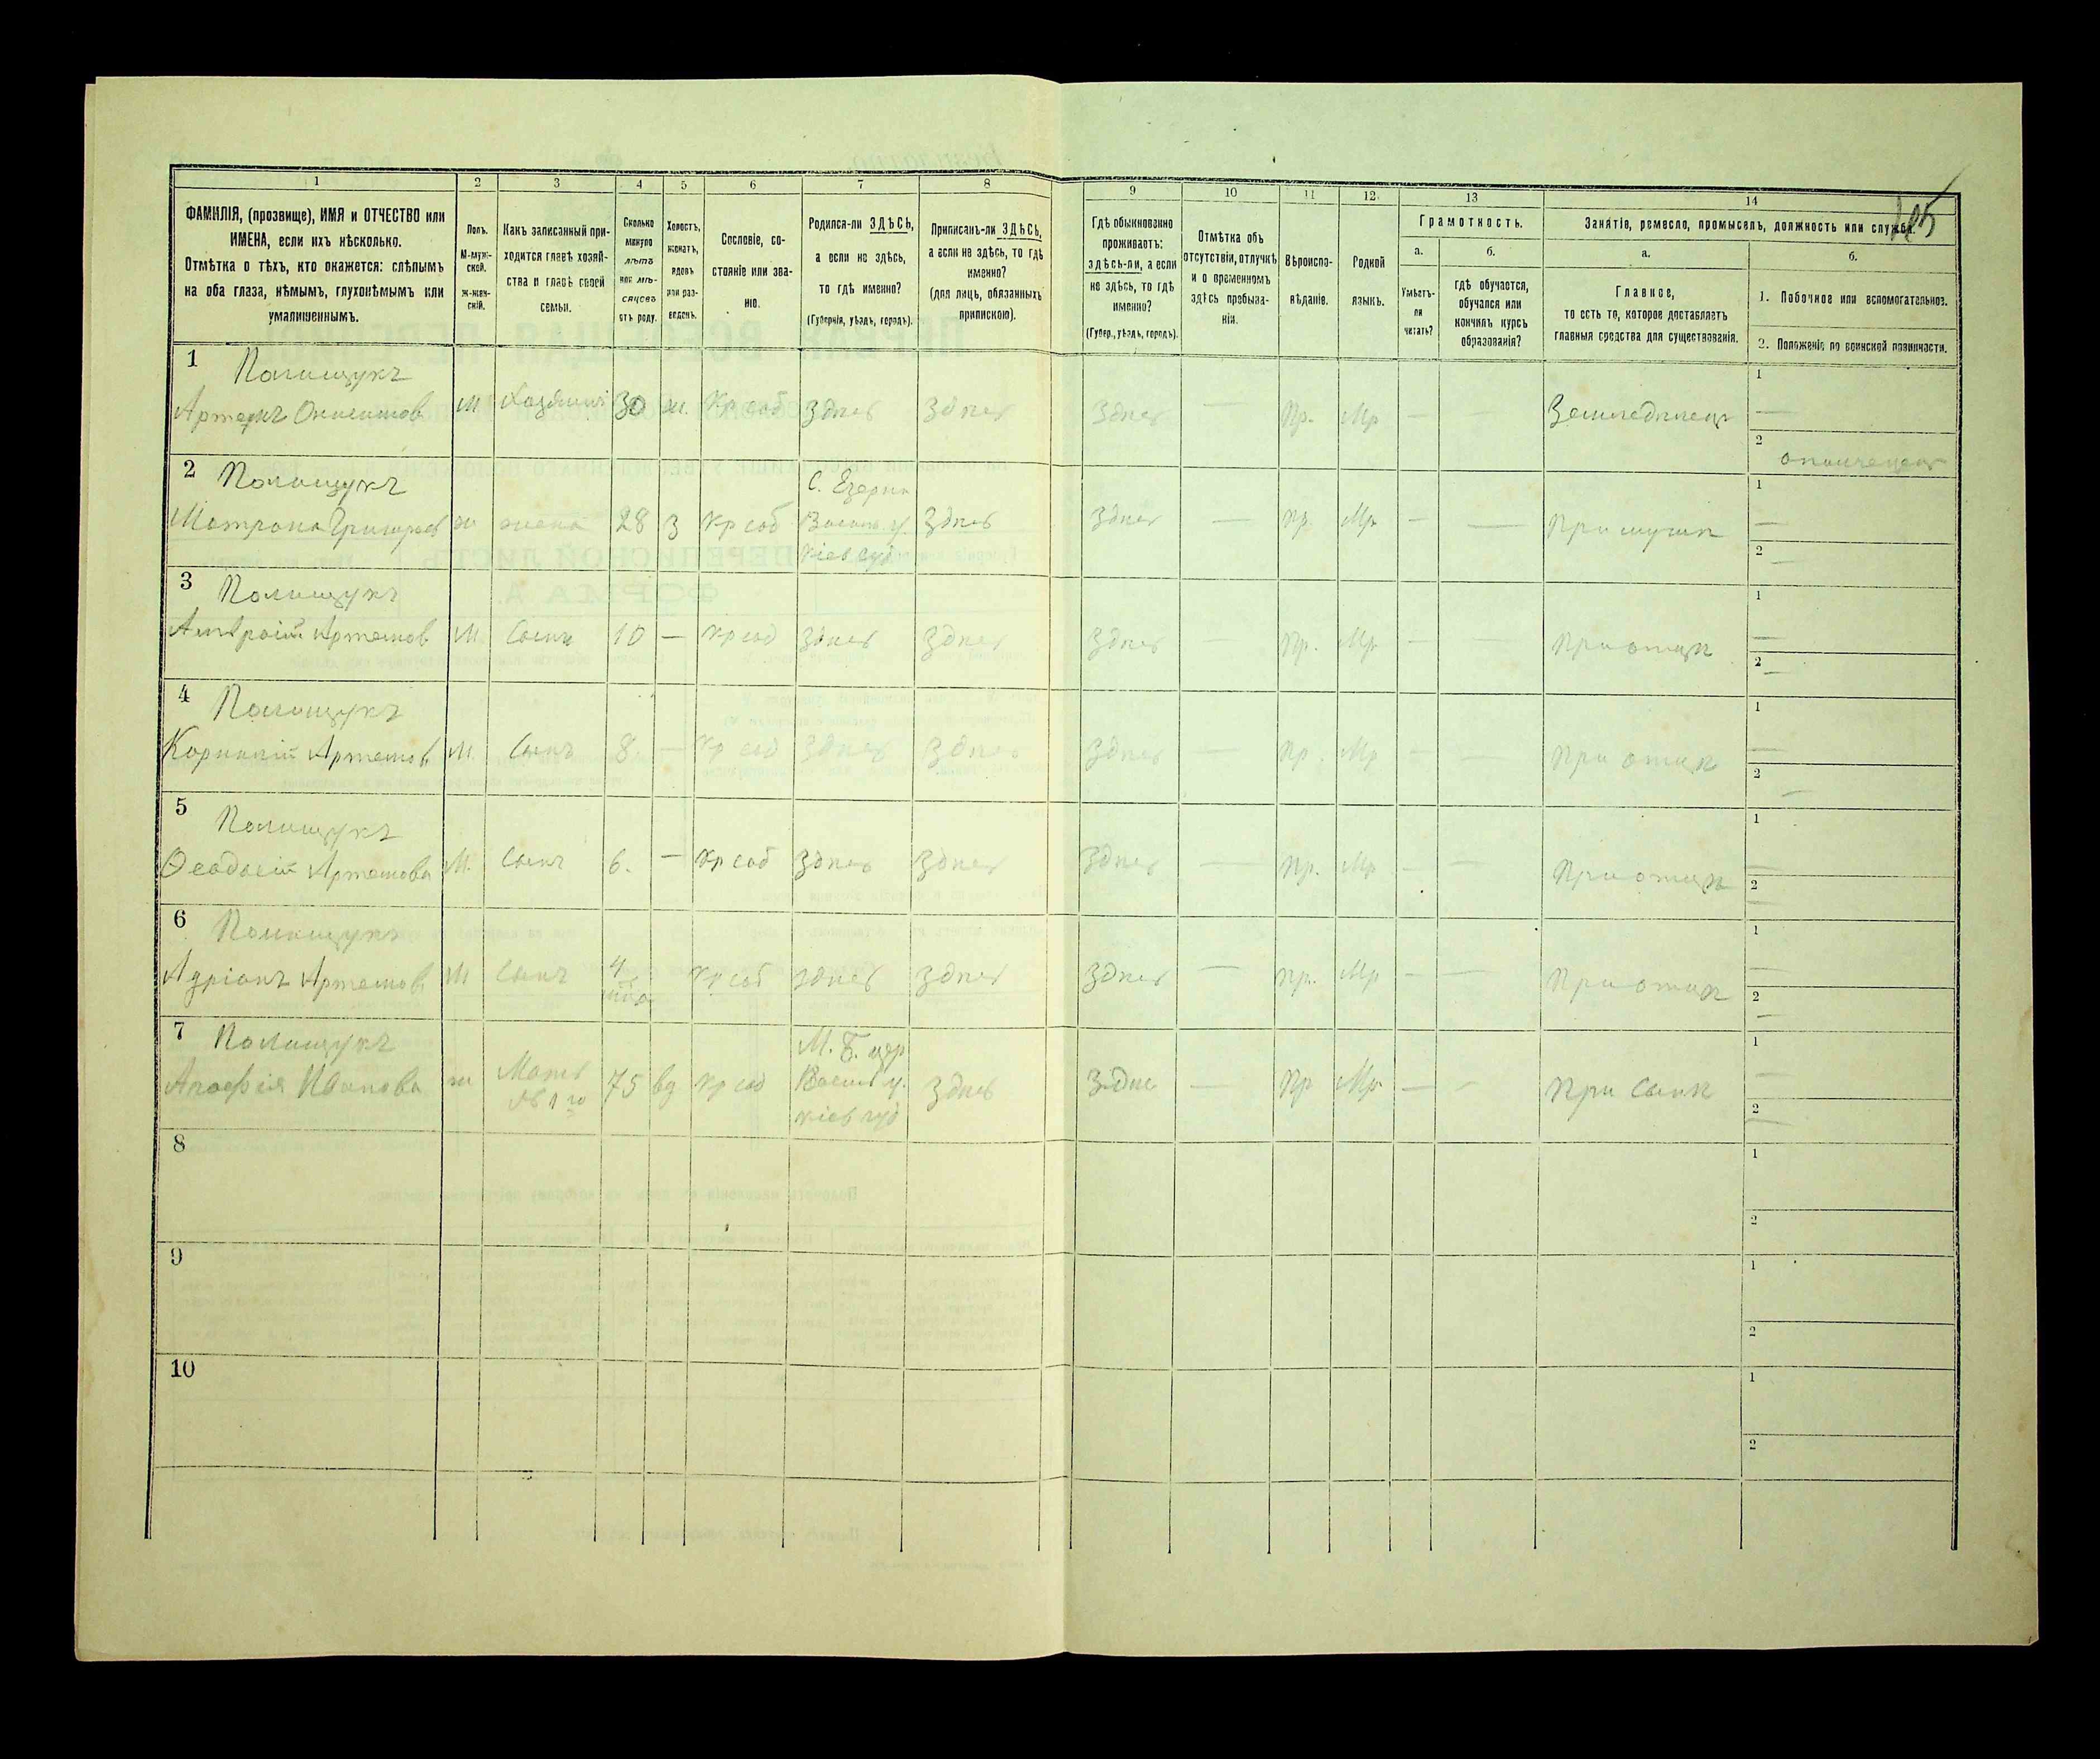 1 2 3 4 5 6 7 8 9 10 11 12 13 14
ФАМИЛІЯ, (прозвище), ИМЯ и ОТЧЕСТВО или
ИМЕНА, если ихъ нѣсколько.
Отмѣтка о тѣхъ, кто окажется: слѣпымъ
на оба глаза, нѣмымъ, глухонѣмымъ или
умалишеннымъ.
Полъ.
М-муж-
ской.
ж-жен-
скій.
Какъ записанный при-
ходится главѣ хозяй-
ства и главѣ своей
семьи.
Сколько
минуло
лѣтъ
или мѣ-
сяцевъ
отъ роду.
Холостъ,
женатъ,
вдовъ
или раз-
веденъ.
Сословіе, со-
стояніе или зва-
ніе.
Родился-ли ЗДѢСЬ,
а если не здѣсь,
то гдѣ именно?
(Губернія, уѣздъ, городъ).
Приписанъ-ли ЗДѢСЬ,
а если не здѣсь, то гдѣ
именно?
(для лицъ, обязанныхъ
припискою).
Гдѣ обыкновенно
проживаетъ:
здѣсь-ли, а если
не здѣсь, то гдѣ
именно?
(Губер., уѣздъ, городъ).
Отмѣтка объ
отсутствіи, отлучкѣ
и о временномъ
здѣсь пребыва-
ніи.
Вѣроиспо-
вѣданіе.
Родной
языкъ.
Грамотность.
а.
Умѣетъ-
ли
читать?
б.
гдѣ обучается,
обучался или
кончилъ курсъ
образованія?
Занятіе, ремесло, промыселъ, должность или служба.
а.
Главное,
то есть то, которое доставляетъ
главныя средства для существованія.
б.
1. Побочное или вспомогательное.
2. Положеніе по воинской повинности.
1 Полищукъ
М Хозяинъ 30 ж. Кр соб Здѣсь Здѣсь Здѣсь — Пр. Мр — — Земледѣлецъ
1 —
2 ополченецъ
2 Полищукъ
Матрона Григорьев ж жена 28 З Кр соб
С. Езерна
Васильк у.
Кіев губ
Здѣсь Здѣсь — Пр. Мр — — При мужѣ
1 —
2 —
3 Полищукъ
Артемов М. Сынъ 10 — Кр соб Здѣсь Здѣсь Здѣсь — Пр. Мр — — При отцѣ
1 —
2 —
4 Полищукъ
Корнилій Артемов М. Сынъ 8. — Кр соб Здѣсь Здѣсь Здѣсь — Пр. Мр — — При отцѣ
1 —
2 —
5 Полищукъ
Ѳеодосій Артемова М. Сынъ 6. — Кр соб Здѣсь Здѣсь Здѣсь — Пр. Мр — — При отцѣ
1 —
2 —
6 Полищукъ
Адріанъ Артемов М Сынъ 4 Кр соб здѣсь Здѣсь Здѣсь — Пр. Мр — — При отцѣ
1 —
2 —
7 Полищукъ
Агафія Иванова ж Мать 1го 75 вд Кр соб
М. Б. цер
Васильк у.
Кіев губ
Здѣсь Здѣс — Пр Мр — — При сынѣ
1 —
2 —
8
1
2
9
1
2
10
1
2